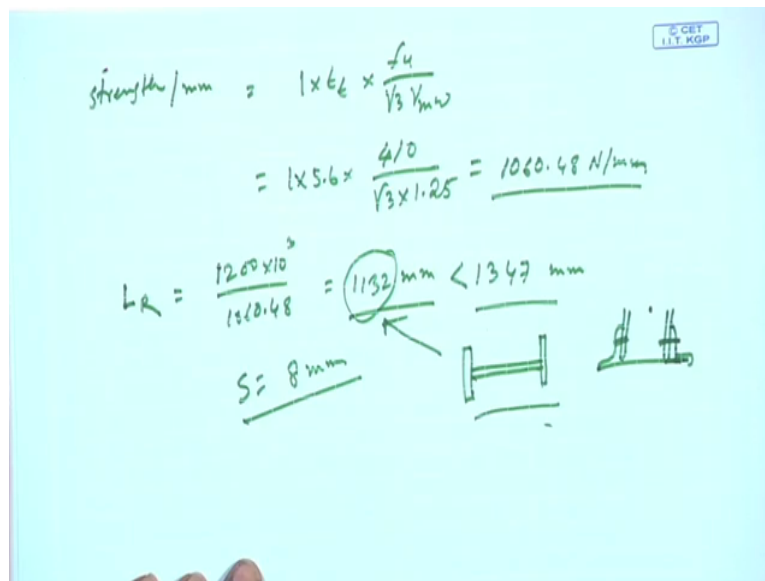 © CET
I.I.T. KGP
strength/mm = 1 x t_t x fu / √3 γmw
= 1 x 5.6 x 410 / √3 x 1.25 = 1060.48 N/mm
L_R = 1200 x 10³ / 1060.48 = 1132 mm < 1347 mm
S = 8 mm